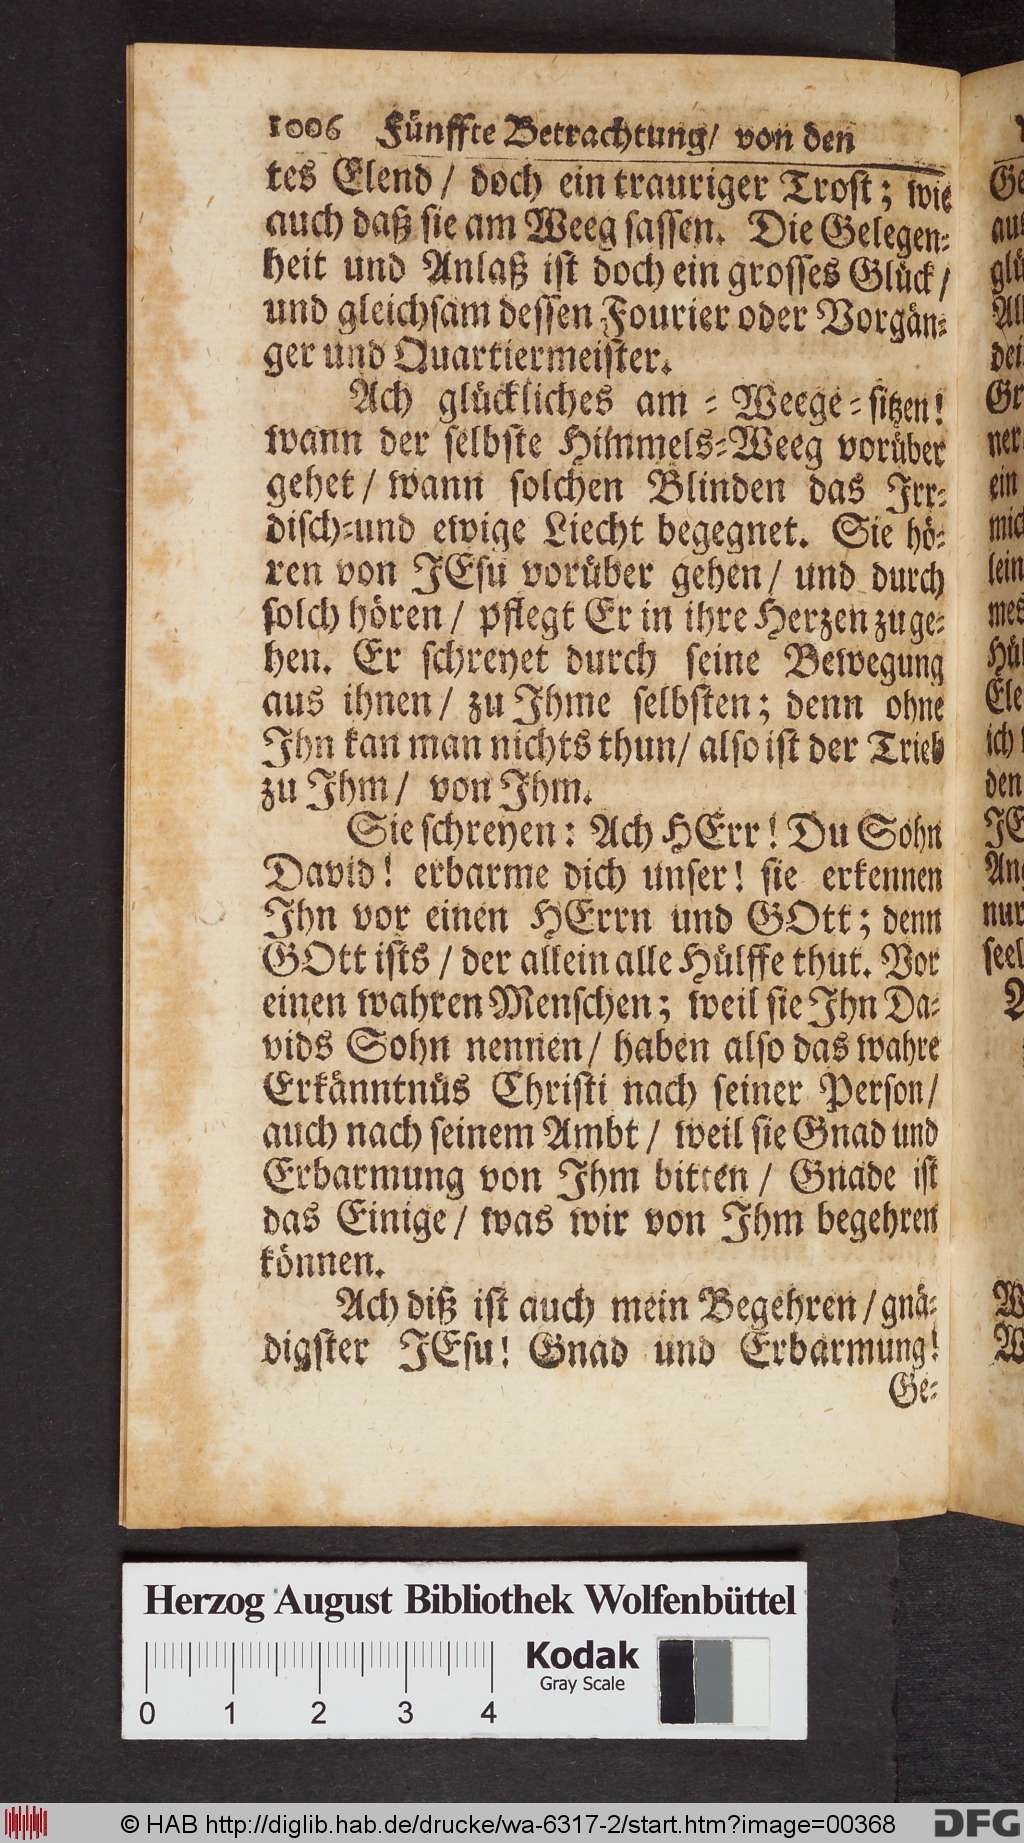 1006 Fünffte Betrachtung/ von den
tes Elend / doch ein trauriger Trost; wie
auch daß sie am Weeg sassen. Die Gelegen-
heit und Anlaß ist doch ein grosses Glück /
und gleichsam dessen Fourier oder Vorgän-
ger und Quartiermeister.
Ach glückliches am - Weege - sitzen!
wann der selbste Himmels-Weeg vorüber
gehet / wann solchen Blinden das Irr-
disch-und ewige Liecht begegnet. Sie hö-
ren von JEsu vorüber gehen / und durch
solch hören / pflegt Er in ihre Herzen zu ge-
hen. Er schreyet durch seine Bewegung
aus ihnen / zu Ihme selbsten; denn ohne
Ihn kan man nichts thun / also ist der Trieb
zu Ihm / von Ihm.
Sie schreyen: Ach HErr! Du Sohn
David! erbarme dich unser! sie erkennen
Ihn vor einen HErrn und GOtt; denn
GOtt ists / der allein alle Hülffe thut. Vor
einen wahren Menschen; weil sie Ihn Da-
vids Sohn nennen / haben also das wahre
Erkänntnüs Christi nach seiner Person /
auch nach seinem Ambt / weil sie Gnad und
Erbarmung von Ihm bitten / Gnade ist
das Einige / was wir von Ihm begehren
können.
Ach diß ist auch mein Begehren / gnä-
digster JEsu! Gnad und Erbarmung!
Ge-
Herzog August Bibliothek Wolfenbüttel
Kodak
Gray Scale
0 1 2 3 4
© HAB http://diglib.hab.de/drucke/wa-6317-2/start.htm?image=00368
DFG